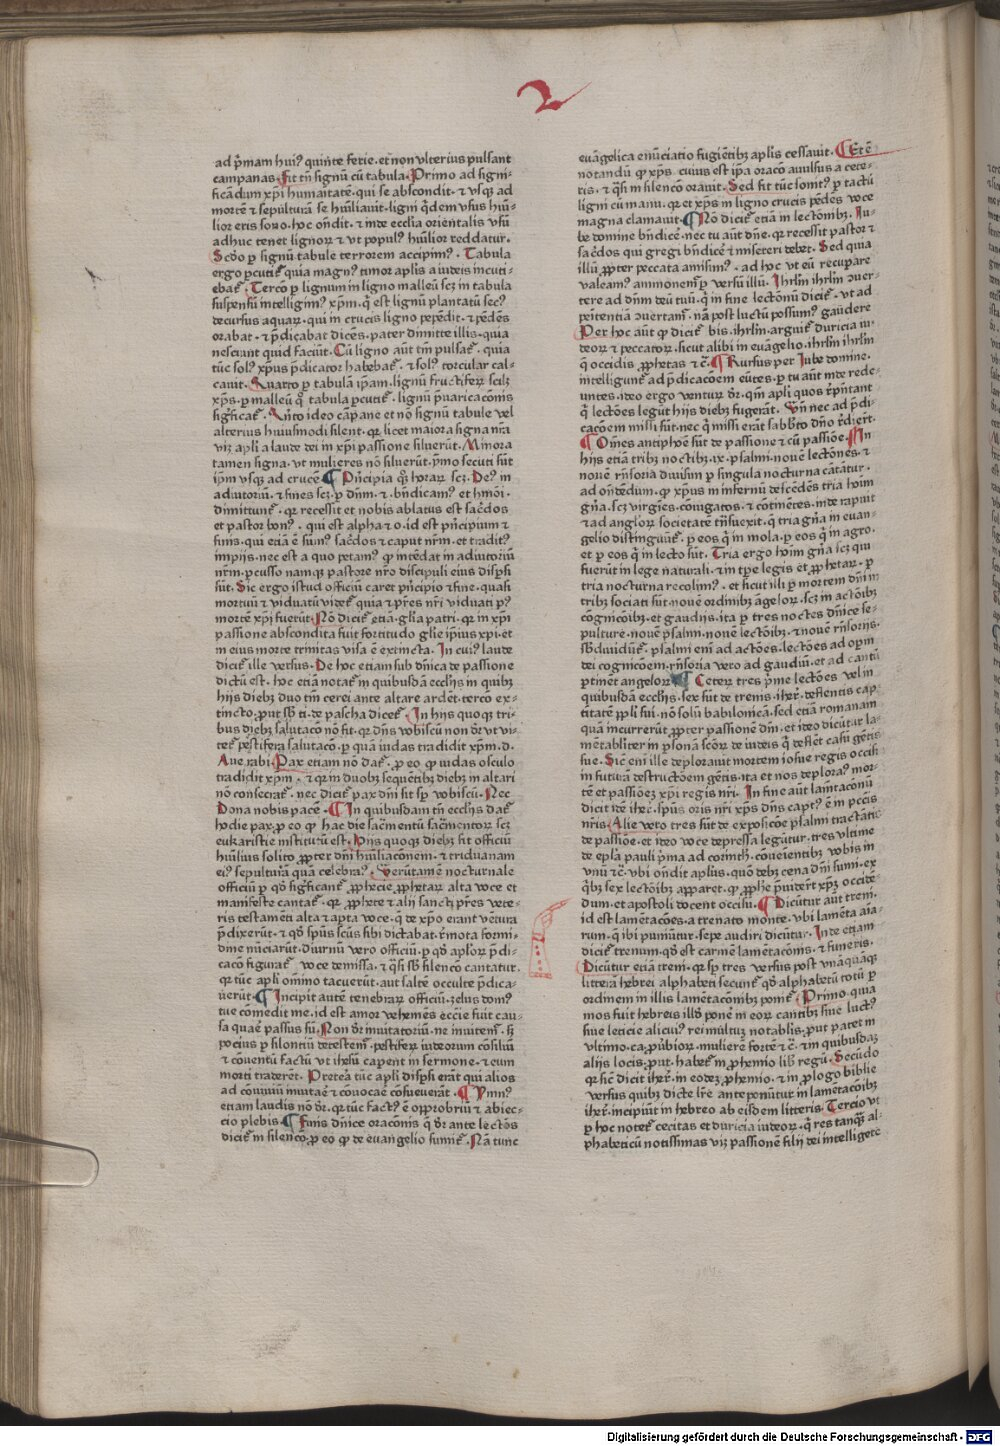 2
ad p̄mam hui⁹ quinte ferie. et non vlterius pulsant
campanas. Fit tn̄ signū cū tabula. Primo ad signi-
ficādum xp̄i humanitatē. qui se abscondit. ⁊ vsqꝫ ad
mortē ⁊ sepulturā se hūiliauit. ligni q̄dem vsus hūi-
lior eris sono. hoc oñdit. ⁊ inde eccl̄ia orientalis vsū
adhuc tenet lignoꝝ ⁊ vt popul⁹ hūilior reddatur.
Scḋo ꝑ signū tabule terrorem accipim⁹. Tabula
ergo ꝑcutit᷑ quia magn⁹ timor apl̄is a iudeis incuti-
ebat᷑. Tercō ꝑ lignum in ligno malleū scꝫ in tabula
suspensū intelligim⁹ xp̄m. q̄ est lignū plantatū sec⁹
decursus aquaꝝ. qui in crucis ligno pepēdit. ⁊ pēdēs
orabat. ⁊ p̄dicabat dicēs. pater dimitte illis. quia
nesciunt quid faciūt. Cū ligno aūt tm̄ pulsat᷑. quia
tūc sol⁹ xp̄us p̄dicator habebat᷑. ⁊ sol⁹ torcular cal-
cauit. Quarto ꝑ tabulā ip̄am. lignū fructiferꝝ scilꝫ
xp̄s. ꝑ malleū q̊ tabula ꝑcutit᷑. lignū p̄uaricacōnis
sig̅ficat᷑. Qn̄to ideo cāpane et nō signū tabule vel
alterius huiusmodi silent. qꝛ licet maiora signa nr̄a
viꝫ apl̄i a laude dei in xp̄i passione siluerūt. Minora
tamen signa. vt mulieres nō siluerūt. p̄mo secuti sūt
ip̄m vsqꝫ ad crucē ¶ Pn̄cipia q̊ꝫ horaꝝ scꝫ. De⁹ in
adiutoriū. ⁊ fines scꝫ. ꝑ dn̄m. ⁊. bn̄dicam⁹ et hm̄ōi.
dimittunt᷑. qꝛ recessit et nobis ablatus est sac̄dos
et pastor bon⁹. qui est alpha ⁊ o. id est pn̄cipium ⁊
finis. qui etiā ē sum⁹ sac̄dos ⁊ caput nr̄m. et tradit⁹
impijs. nec est a quo petam⁹ ꝙ intēdat in adiutoriū
nr̄m. ꝑcusso namqꝫ pastore nr̄o discipuli eius disꝑsi
sūt. Sic ergo istud officiū caret pn̄cipio ⁊ fine. quasi
mortuū ⁊ viduatū videt᷑ quia ⁊ pr̄es nr̄i viduati ꝑ⁹
mortē xp̄i fuerūt. Nō dicit᷑ etiā. gl̄ia patri. qꝛ in xp̄i
passione abscondita fuit fortitudo gl̄ie ip̄ius xp̄i. et
in eius morte trinitas visa ē extincta. In cui⁹ laude
dicit᷑ ille versus. De hoc etiam sub dn̄ica de passione
dictū est. hoc etiā notat᷑ in quibusdā eccl̄ijs in quibꝫ
hijs diebꝫ duo tm̄ cerei ante altare ardēt. tercō ex-
tincto. ꝓut sb̄ ti. de pascha dicet᷑. In hijs quoqꝫ tri-
bus diebꝫ salutacō nō fit. qꝛ dn̄s vobiscū non dr̄. vt vi-
tet᷑ pestifera salutacō. ꝑ quā iudas tradidit xp̄m. d.
Aue rabi. Pax etiam nō dat᷑. ꝓ eo ꝙ iudas osculo
tradidit xp̄m. ⁊ qꝛ in duobꝫ sequētibꝫ diebꝫ in altari
nō consecrat᷑. nec dicit᷑ pax dn̄i sit sꝑ vobiscū. Nec
Dona nobis pacē. ¶ In quibusdam tn̄ eccl̄ijs dat᷑
hodie pax. ꝓ eo ꝙ hac die sacͣmentū sacͣmentoꝝ scꝫ
eukaristie institutū est. Hijs quoqꝫ diebꝫ fit officiū
hūilius solito ꝓpter dn̄i hūiliacōnem. ⁊ triduanam
ei⁹ sepulturā quā celebra⁹. Verūtamē nocturnale
officiū ꝑ qḋ sig̅ficant᷑ ꝓphecie ꝓphetaꝝ alta voce et
manifeste cantat᷑. qꝛ ꝓphete ⁊ alij sancti pr̄es vete-
ris testamēti alta ⁊ apta voce. q̄ de xp̄o erant vētura
p̄dixerūt. ⁊ qḋ sp̄us sc̄us sibi dictabat. r̄mota formi-
dine nūciarūt. diurnū vero officiū. ꝑ qḋ apl̄oꝝ p̄di-
cacō figurat᷑ voce demissa. ⁊ q̄si sb̄ silencō cantatur.
qꝛ tūc apl̄i omīno tacuerūt. aut saltē occulte p̄dica-
uerūt. ¶ Incipit autē tenebraꝝ officiū. zelus dom⁹
tue comedit me. id est amor vehemēs eccl̄ie fuit cau-
sa quaꝛ passus sū. Non dr̄ inuitatoriū. ne inuitem⁹. sꝫ
pocius ꝑ silentiū detestem⁹. pestiferꝝ iudeorum cōsiliū
⁊ cōuentū factū vt ih̄esū capent in sermone. ⁊ eum
morti traderēt. Pretea tūc apl̄i disꝑsi erāt qui alios
ad cōuiuiū inuitaē ⁊ cōuocaē cōsueuerāt. ¶ Ymn⁹
etiam laudis nō dr̄. qꝛ tūc fact⁹ ē opꝓbriū ⁊ abiec-
cio plebis. ¶ Finis dn̄ice oracōnis q̄ dr̄ ante lectōs
dicit᷑ in silencō. ꝓ eo ꝙ de euangelio sumit᷑. Nā tunc
euāgelica enūciatio fugiētibꝫ apl̄is cessauit. ¶ Et ē
notandū ꝙ xp̄s. cuius est ip̄a oracō auulsus a cete-
ris. ⁊ q̄si in silencō orauit. Sed fit tūc sonit⁹ ꝑ tactū
ligni cū manu. qꝛ et xp̄s in ligno crucis pēdēs voce
magna clamauit. ¶ Nō dicit᷑ etiā in lectōnibꝫ. Iu-
be domine bn̄dicē. nec tu aūt dn̄e. qꝛ recessit pastor ⁊
sac̄dos qui gregi bn̄dicē ⁊ misereri debet. Sed quia
illū ꝓpter peccata amisim⁹. ad hoc vt eū recuꝑare
valeam⁹ ammonem̄ ꝑ versū illū. Ihr̄lm ihr̄lm ꝯuer-
tere ad dn̄m deū tuū. q̄ in fine lectōnū dicit᷑. vt ad
penitentiā ꝯuertam̄. nā post luctū possum⁹ gaudere
Per hoc aūt ꝙ dicit᷑ bis. ihr̄lm. arguit᷑ duricia iu-
deoꝝ ⁊ peccatoꝝ. sicut alibi in euāgelio. ihr̄lm ihr̄lm
q̄ occidis ꝓphetas ⁊ c̄. ¶ Rursus per Iube domine.
intelligunt᷑ ad p̄dicacōem eūtes. ꝑ tu aūt inde rede-
untes. ideo ergo ventuꝝ dr̄. qm̄ apl̄i quos rp̄ntant
q̄ lectōes legūt hijs diebꝫ fugerāt. Vn̄ nec ad p̄di-
cacōem missi sūt. nec q̄ missi erāt sabb̄to dn̄o r̄dierūt.
¶ Om̄es antiphōe sūt de passione ⁊ cū passiōe. ¶ In
hijs etiā tribꝫ noctibꝫ. ix. psalmi. nouē lectōnes. ⁊
nouē rn̄soria diuisim ꝑ singula nocturna cātātur.
ad oñdēdum. ꝙ xp̄us in infernū descēdēs tria hoīm
gn̄a. scꝫ virgīes. cōiugatos. ⁊ cōtinētes. inde rapuit
⁊ ad angloꝝ societatē trn̄suexit. q̄ tria gn̄a in euan-
gelio distinguūt᷑. ꝑ eos q̄ in mola. ꝑ eos q̄ in agro.
et ꝑ eos q̄ in lecto sūt. Tria ergo hoīm gn̄a scꝫ qui
fuerūt in lege naturali. ⁊ in tp̄e legis et ꝓphetaꝝ. ꝑ
tria nocturna recolim⁹. et sicut illi ꝑ mortem dn̄i in
tribꝫ sociati sūt nouē ordinibꝫ āgeloꝝ. scꝫ in actōibꝫ
cognicōibꝫ. et gaudijs. ita ꝑ tres noctes dn̄ice se-
pulture. nouē psalmi. nouē lectōibꝫ. ⁊ nouē rn̄sorijs.
sb̄diuidūt᷑. psalmi eni̅ ad actōes. lectōes ad oꝑm
dei cognicōem. rn̄soria vero ad gaudiū. et ad cantū
ꝑtinēt angeloꝝ ¶ Ceteꝝ tres p̄me lectōes vel in
quibusdā eccl̄ijs. sex sūt de trenis. iher̄. deflentis cap-
titatē ppl̄i sui. nō solū babilonicā. sed etiā romanam
quā incurrerūt ꝓpter passionē dn̄i. et ideo dicūtur la-
mētabilit̄ in ꝑsonā sc̄oꝝ de iudeis q̄ deflēt casū gētis
sue. Sic eni̅ ille deplorauit mortem iosue regis occisi
in futurā destructōem gētis. ita et nos deplora⁹ mor-
tē et passiōeꝫ xp̄i regis nr̄i. In fine aūt lamētacōnū
dicit idē iher̄. sp̄us oris nr̄i xp̄s dn̄s capt⁹ ē in pccīs
nr̄is. Alie vero tres sūt de exposicōe psalmi tractātis
de passiōe. et ideo voce depressa legūtur. tres vltime
de epl̄a pauli p̄ma ad corinth̄. cōueientibꝫ vobis in
vnū ⁊c̄. vbi oñdit apl̄us. quō debꝫ cena dn̄i sumi. ex
q̄bꝫ sex lectōibꝫ apparet. ꝙ ꝓph̄e p̄uidert̄ xp̄ꝫ occidē-
dum. et apostoli docent occisū. ¶ Dicūtur aūt treni.
id est lamētacōes. a trenato monte. vbi lamēta aīa-
rum. q̄ ibi puniūtur. sepe audiri dicūtur. Inde etiam
dicit᷑ trenum. qḋ est carmē lamētacōnis. ⁊ funeris.
Dicūtur etiā treni. qꝛ sꝑ tres versus post vnāquāqꝫ
litterā hebrei alphabeti secunt᷑ qḋ alphabetū totū ꝑ
ordinem in illis lamētacōnibꝫ ponit᷑. Primo. quia
mos fuit hebreis illd̄ ponē in eoꝝ cantibꝫ siue luct⁹
siue leticie alicui⁹ rei mūltuꝫ notabl̄is. ꝓut patet in
vltimo. ca. ꝓūbioꝝ. mulierē fortē ⁊ c̄. ⁊ in quibusdaꝫ
alijs locis. ꝓut. habet᷑ in ꝓhemio lib̄ regū. Secūdo
qꝛ sic̄ dicit iher̄. in eodeꝫ ꝓhemio. ⁊ in ꝓlogo biblie
versus quibꝫ dicte lr̄e anteponūtur in lamētacōibꝫ
iher̄. incipiūt in hebreo ab eisdem litteris. Tercio vt
ꝑ hoc notet᷑ cecitas et duricia iudeoꝝ. q̄ res tanqꝫ al-
phabeticū notissimas viꝫ passionē filij dei intelligere
Digitalisierung gefördert durch die Deutsche Forschungsgemeinschaft - DFG